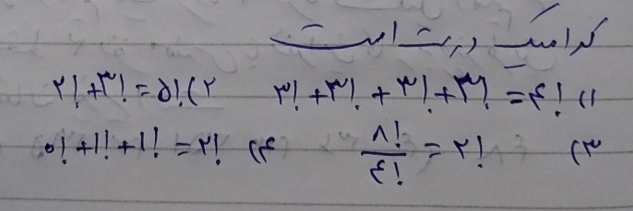 کدامیک درست است
۱) ۴! = ۳! + ۳! + ۳! + ۳! ۲) ۵! = ۳! + ۲!
۳) ۲! = ۸! / ۴! ۴) ۲! = ۱! + ۱! + ۰!